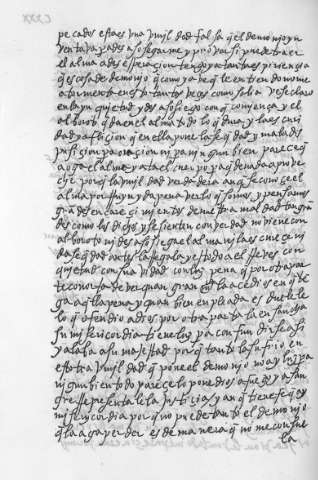 CXXX
pecados esta es una umildad falsa q̃ el demonio yn
ventava para desasosegarme y provar si puede traer
el alma a desesperaçion tengo ya tanta espiriençia
que es cosa de demonio q̃ como ya ve q̃ le entiendo no me
atormenta en esto tantas veçes como solia vese claro
en la ynquietud y desasosiego con q̃ comiença y el
alboroto q̃ da en el alma todo lo q̃ dura y la escuri
dad y afliçion q̃ en ella pone la seq̃dad y mala dis
pusiçion para oraçion ni para ningun bien pareçe q̃
aoga el alma y ata el cuerpo para q̃ de nada aprove
che porq̃ la umildad verdadera aunq̃ se conoçe el
alma por ruyn y da pena ver lo q̃ somos y pensamos
grandes encareçimientos de nuestra maldad tan grã
des como los dichos y se sienten con verdad no viene con
alboroto ni desasosiega el alma ni la escureçe ni
da seq̃dad antes la regala y es todo al reves con
quietud con suavidad con luz pena q̃ por otra par
te conforta de ver quan gran mrd la açe dios en q̃ te
ga aq̃lla pena y quan bien enpleada es duelele
lo q̃ ofendio a dios por otra parte la ensancha
su misericordia tiene luz para confundirse a si
y alaba a su majestad porq̃ tanto la sufrio en
estotra umildad q̃ pone el demonio no ay luz pa
ningun bien todo pareçe lo pone dios a fuego y a san
gre representale la justiçia y aunq̃ tiene fe q̃ ay
misericordia porq̃ no puede tanto el demonio
q̃ la aga perder es de manera q̃ no me consue
la